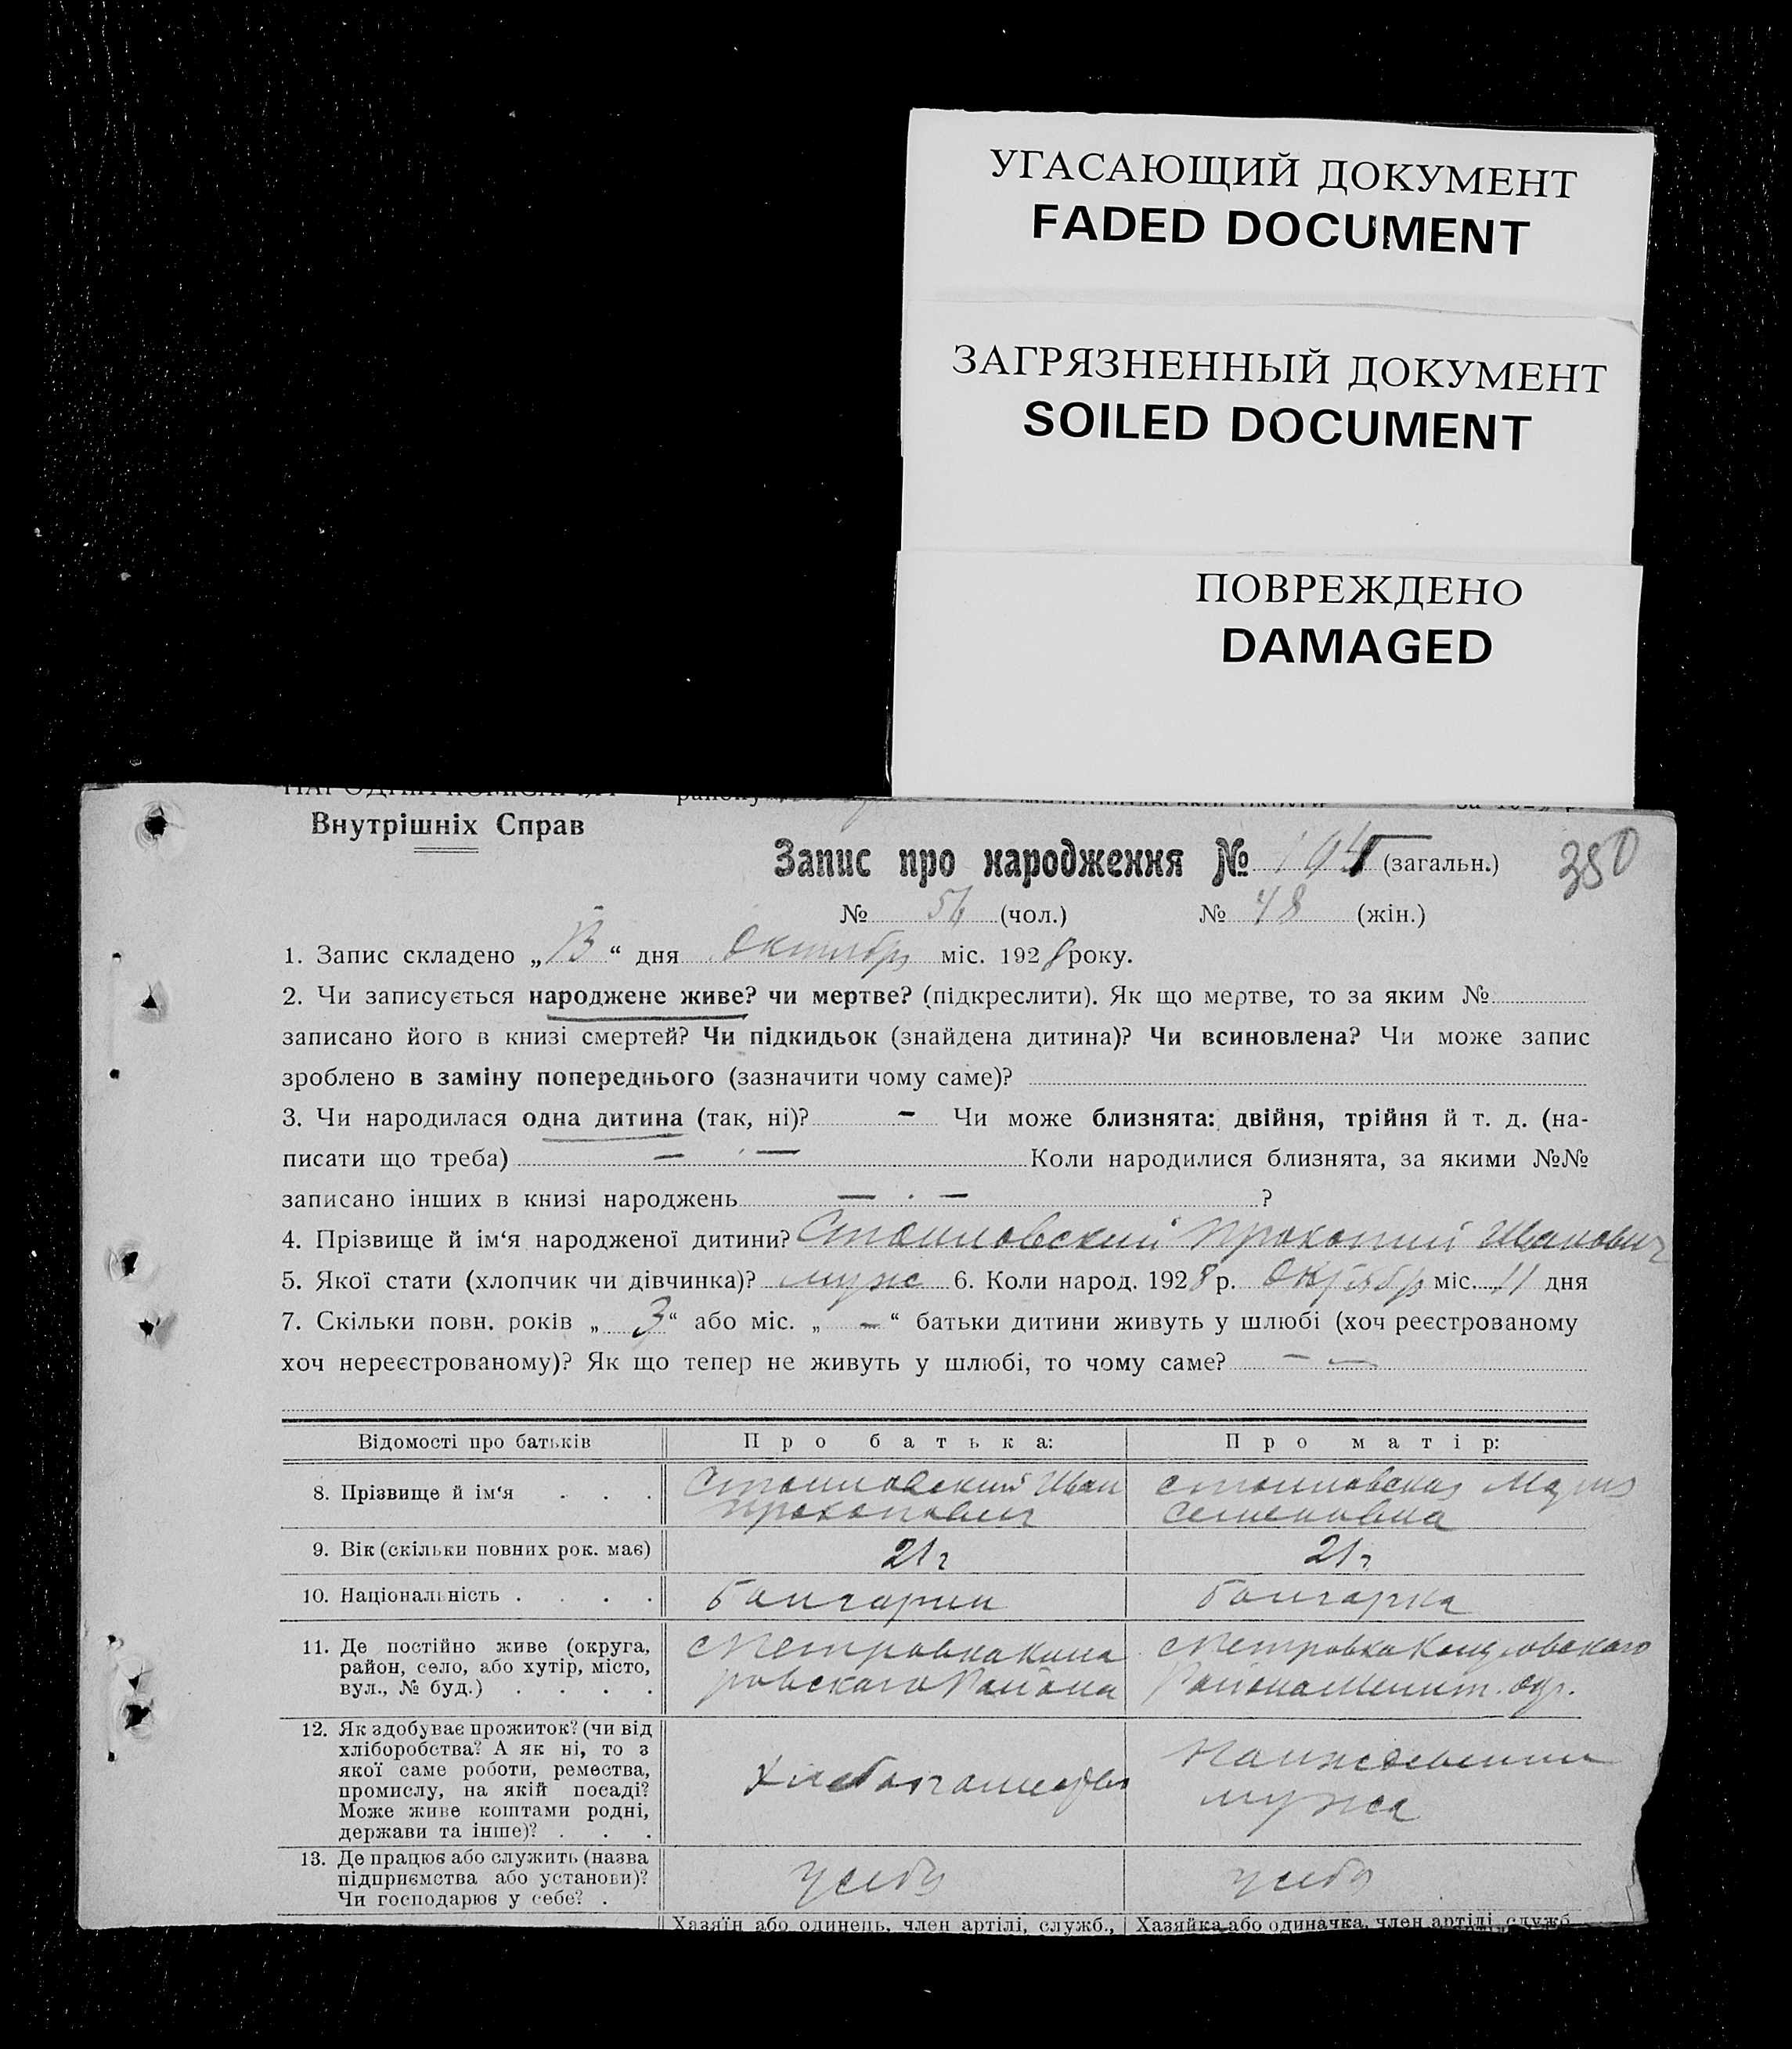 УГАСАЮЩИЙ ДОКУМЕНТ
FADED DOCUMENT
ЗАГРЯЗНЕННЫЙ ДОКУМЕНТ
SOILED DOCUMENT
ПОВРЕЖДЕНО
DAMAGED
Внутрішніх Справ
Запис про народження № (загальн.) 350
№ 56 (чол.) № 48 (жін.)
1. Запис складено „13“ дня Октября міс. 1928 року.
2. Чи записується народжене живе? чи мертве? (підкреслити). Як що мертве, то за яким №
записано його в книзі смертей? Чи підкидьок (знайдена дитина)? Чи всиновлена? Чи може запис
зроблено в заміну попереднього (зазначити чому саме)?
3. Чи народилася одна дитина (так, ні)? – Чи може близнята: двійня, трійня й т. д. (на-
писати що треба) — — Коли народилися близнята, за якими №№
записано інших в книзі народжень — · — ?
4. Прізвище й ім‘я народженої дитини? Стоиловский Прокопий Иванович
5. Якої стати (хлопчик чи дівчинка)? муж 6. Коли народ. 1928 р. Октябр міс. 11 дня
7. Скільки повн. років „ 3 “ або міс. „ – “ батьки дитини живуть у шлюбі (хоч реєстрованому
хоч нереєстрованому)? Як що тепер не живуть у шлюбі, то чому саме? — —
Відомості про батьків Про батька: Про матір:
8. Прізвище й ім‘я . . . Стоиловский Иван Прокопович Стоиловская Мария Семеновна
9. Вік (скільки повних рок. має) 21 г 21 г
10. Національність . . . . болгарин болгарка
11. Де постійно живе (округа,
район, село, або хутір, місто,
вул., № буд.) . . . .
с Петровка
ровского Района
с Петровка
Района Мелит. окр.
12. Як здобуває прожиток? (чи від
хліборобства? А як ні, то з
якої саме роботи, ремества,
промислу, на якій посаді?
Може живе коштами родні,
держави та інше)? . . .
Хлебопашество
На иждевении
мужа
13. Де працює або служить (назва
підприємства або установи)?
Чи господарює у себе? .
у себя у себя
Хазяїн або одинець, член артілі, служб., Хазяйка або одиначка, член артілі, служб.